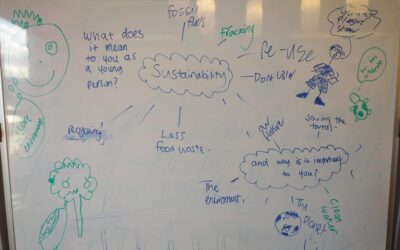 Fossil
fuels
Fracking
What does
it mean
to you as
a young
person?
Sustainability
Re-use
Don't litter
Recycling
Less
food waste.
our future
Saving the
and why is it important
to you?
The enviroment.
The Planet
Clean
water